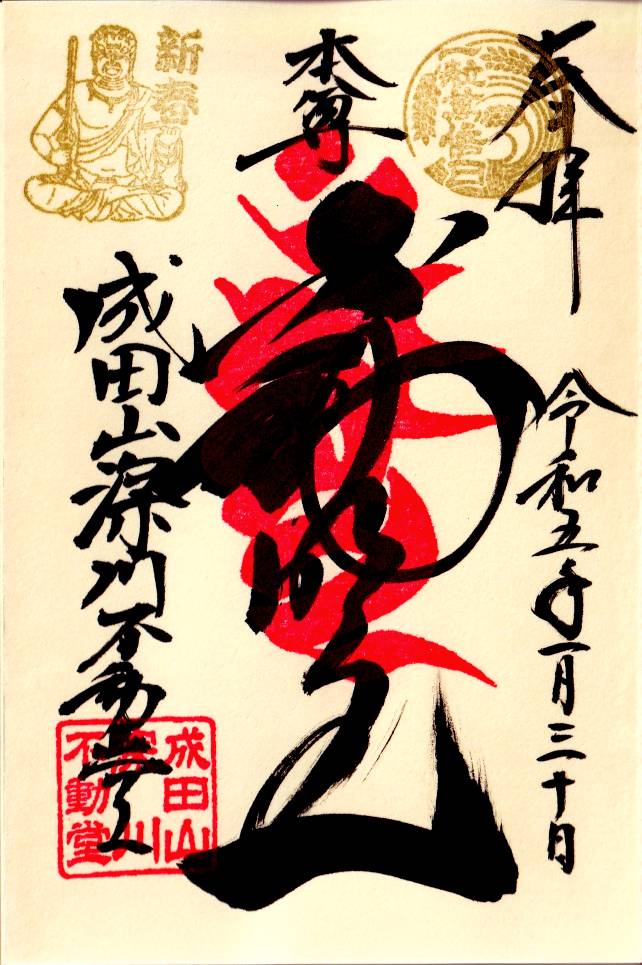 奉拝
令和五年一月三十日
本尊
不動明王
新春
成田山深川不動堂
成田山
深川
不動堂